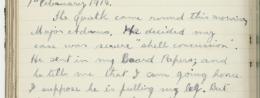 1st February 1916.
The quack came round this morning,
Major Adams. He decided my
case was severe "shell concussion".
He sent in my Board Papers, and
he tells me that I am going home.
I suppose he is pulling my leg. But